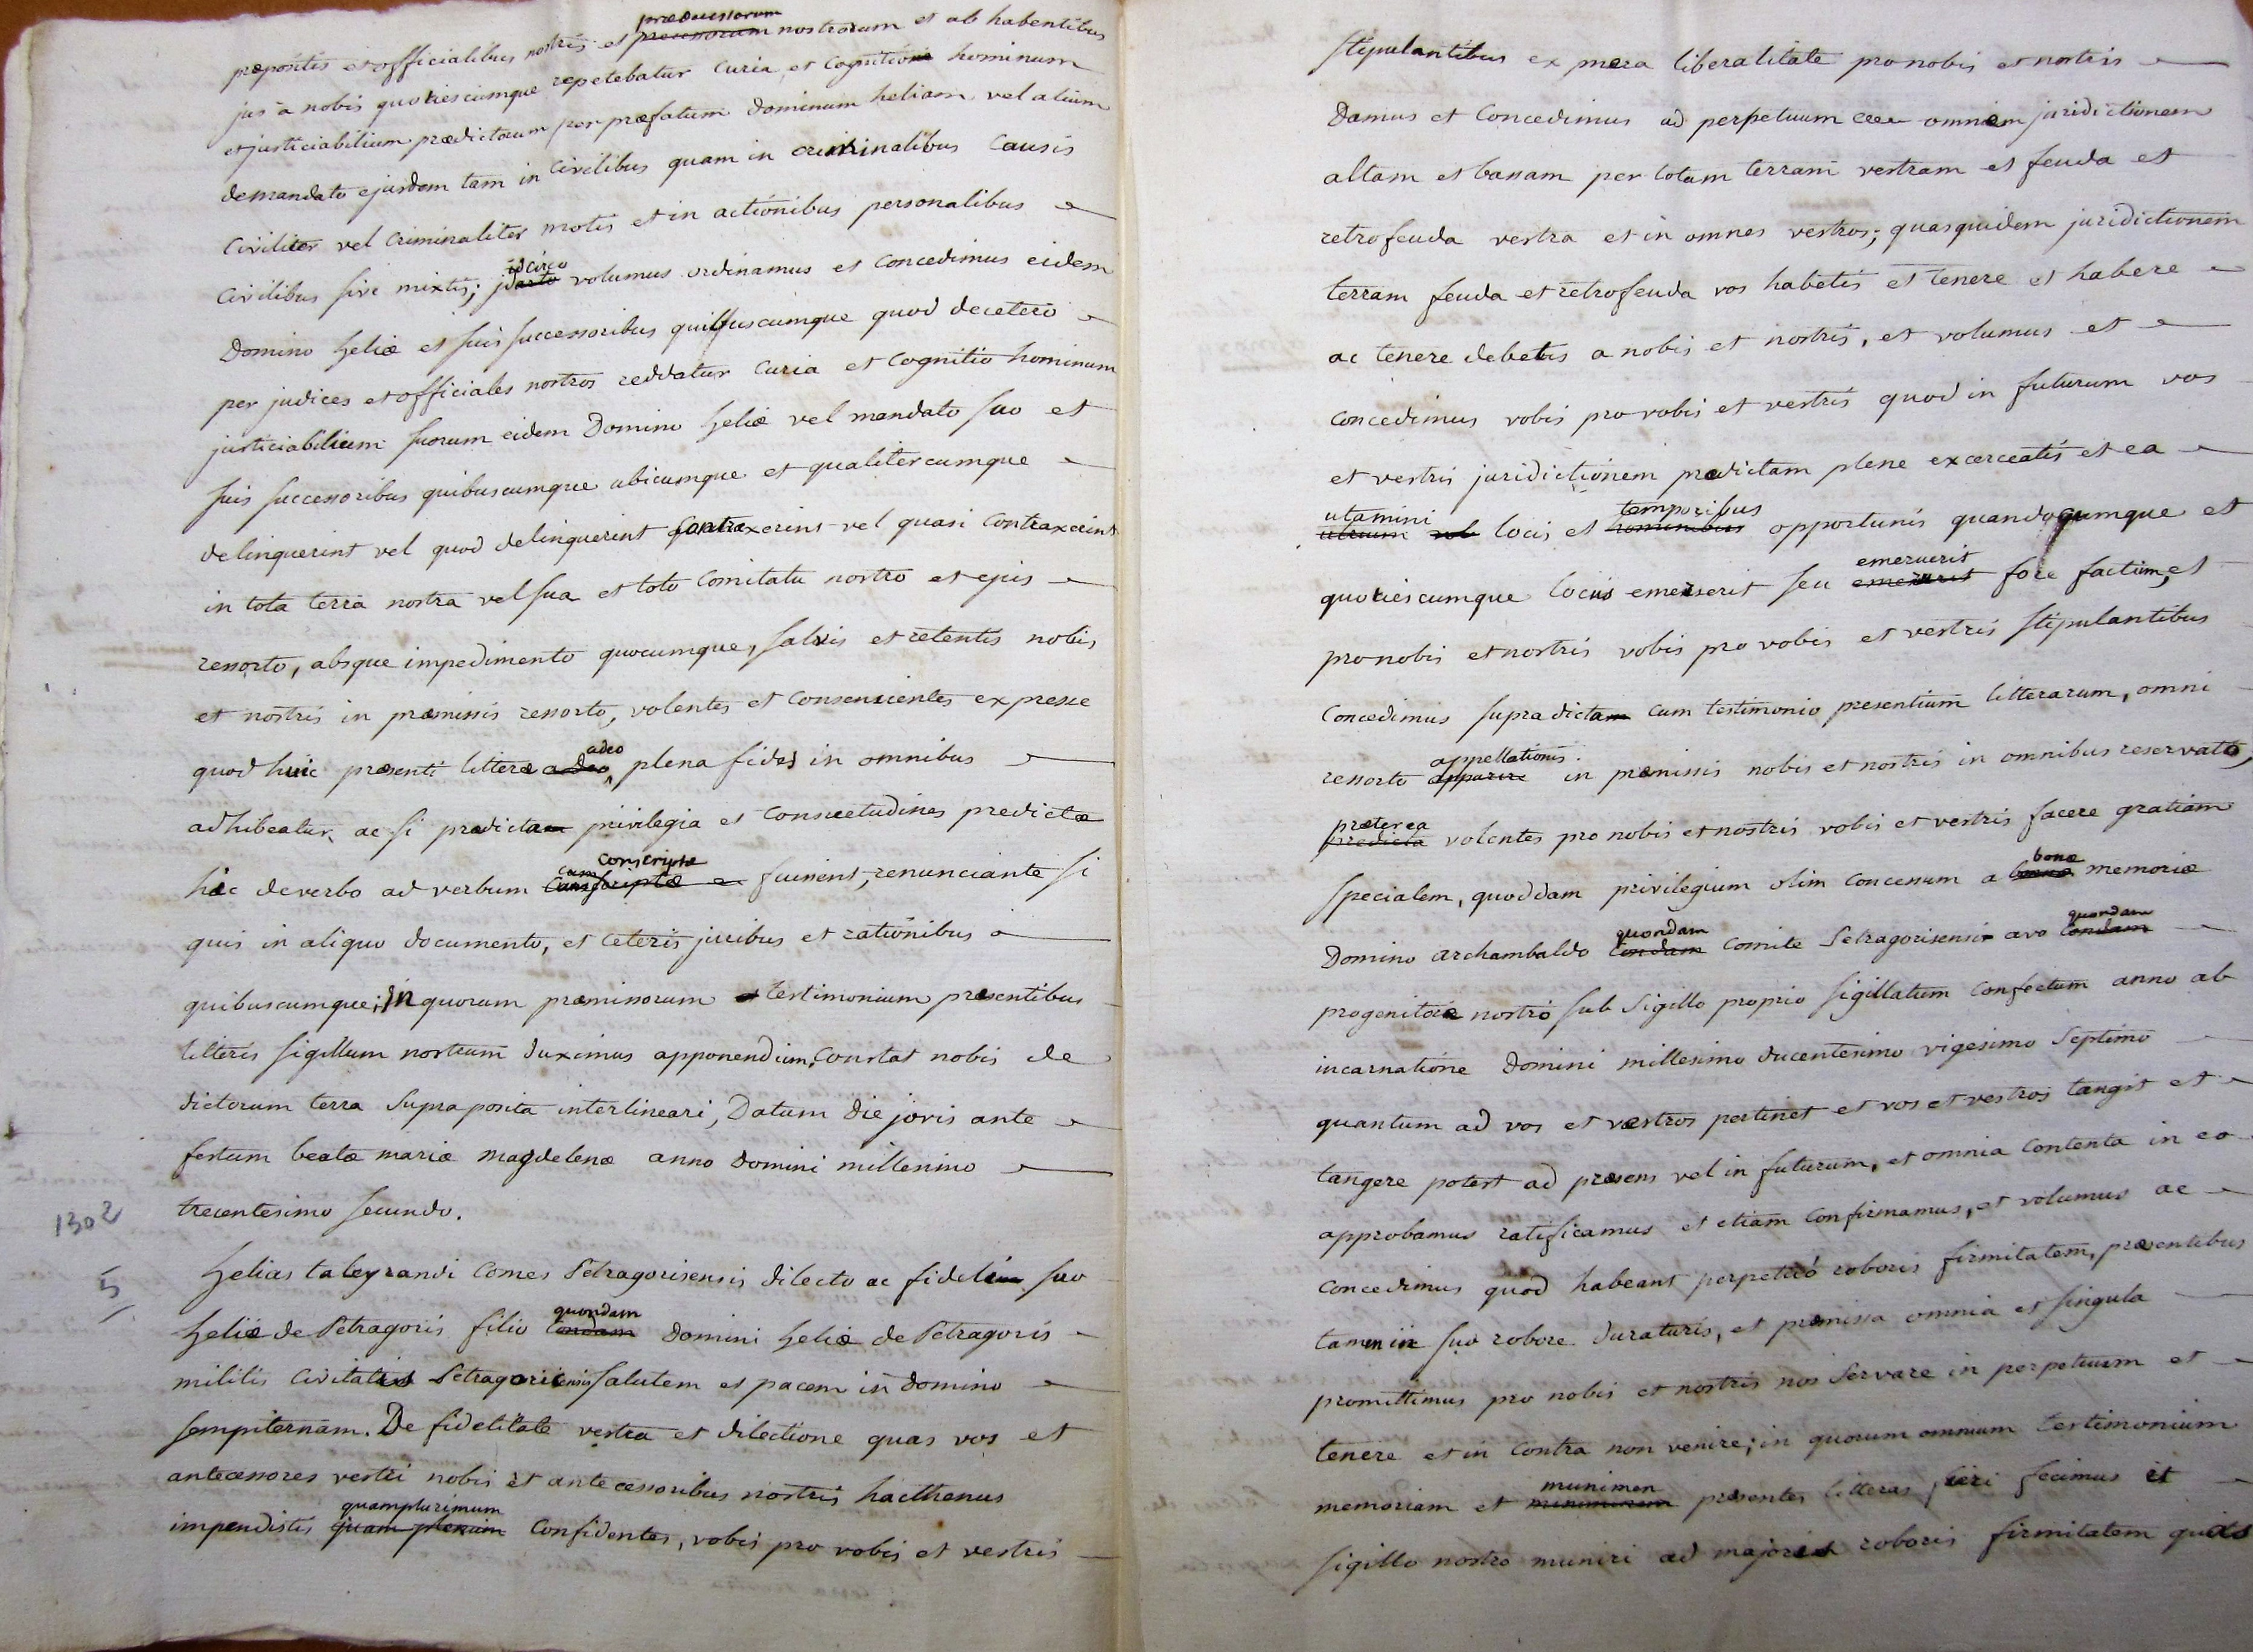 præpositis et officialibus nostris et prædecessorum precessorum nostrorum et ab habentibus
jus a nobis quotiescumque repetebatur Curia et Cognitione hominum
et justiciabilium prædictorum per præfatum Dominum heliam vel alium
demandato ejusdem tam in Civilibus quam in criminalibus Causis
Civiliter vel Criminaliter motis et in actionibus personalibus
Civilibus sive mixtis; idcirco volumus ordinamus et Concedimus eidem
Domino heliæ et suis successoribus quibuscumque quod decetero
per judices et officiales nostros reddatur Curia et Cognitio hominum
justiciabilium suorum eidem Domino heliæ vel mandato suo et
suis successoribus quibuscumque ubicumque et qualitercumque
delinquerint vel quod delinquerint contraxerint vel quasi Contraxerint
in tota terra nostra vel sua et toto Comitatu nostro et ejus
ressorto, absque impedimento quocumque, salvis et retentis nobis
et nostris in præmissis ressorto, volentes et Consencientes expresse
quod huic præsenti litteræ adeo adeo plena fides in omnibus
adhibeatur, ac si prædictæ privilegia et Consuetudines predictæ
hic de verbo ad verbum conscriptæ fuissent, renunciante si
quis in aliquo documento, et Ceteris juribus et rationibus
quibuscumque; In quorum præmissorum testimonium præsentibus
litteris sigillum nostrum duximus apponendum, Constat nobis de
dictorum terra Supraposita interlineari, Datum die jovis ante
festum beatæ mariæ magdelenæ anno Domini millesimo
1302 trecentesimo secundo.
5 helias taleyrandi Comes Petragorisensis dilecto ac fideli suo
heliæ de Petragoris filio quondam Condam Domini heliæ de Petragoris
militis Civitatis Petragoricensis salutem et pacem in domino
sempiternam. De fidelitate vestra et dilectione quas vos et
antecessores vestri nobis et antecessoribus nostris hacthenus
impendistis quamplurimum quam plenam Confidentes, vobis pro vobis et vestris
stipulantibus ex mera liberalitate pro nobis et nostris
Damus et Concedimus ad perpetuum omnem juridictionem
altam et bassam per totam terram vestram et feuda et
retrofeuda vestra et in omnes vestros; quasquidem juridictionem
terram feuda et retrofeuda vos habetis et tenere et habere
ac tenere debetis a nobis et nostris, et volumus et
Concedimus vobis pro vobis et vestris quod in futurum vos
et vestris juridictionem prædictam plene exerceatis et ea
utamini locis et temporibus hominibus opportunis quandocumque et
quotiescumque locus emerserit seu emeruerit fore factum, et
pro nobis et nostris vobis pro vobis et vestris stipulantibus
Concedimus supradicta Cum testimonio presentium litterarum, omni
ressorto appellationis apparire in præmissis nobis et nostris in omnibus reservato,
præterea predicta volentes pro nobis et nostris vobis et vestris facere gratiam
specialem, quoddam privilegium olim Concessum a bonæ memoriæ
Domino archambaldo quondam Condam Comite Petragorisensi avo quondam Condam
progenitore nostro sub Sigillo proprio sigillatum Confectum anno ab
incarnatione Domini millesimo ducentesimo vigesimo Septimo
quantum ad vos et vestros pertinet et vos et vestros tangit et
tangere potest ad præsens vel in futurum, et omnia Contenta in eo
approbamus ratificamus et etiam Confirmamus, et volumus ac
Concedimus quod habeant perpetuo roboris firmitatem, præsentibus
tamen in suo robore duraturis, et præmissa omnia et singula
promittimus pro nobis et nostris nos Servare in perpetuum et
tenere et in Contra non venire; in quorum omnium testimonium
memoriam et munimen presentes litteras fieri fecimus et
sigillo nostro muniri ad majoris roboris firmitatem